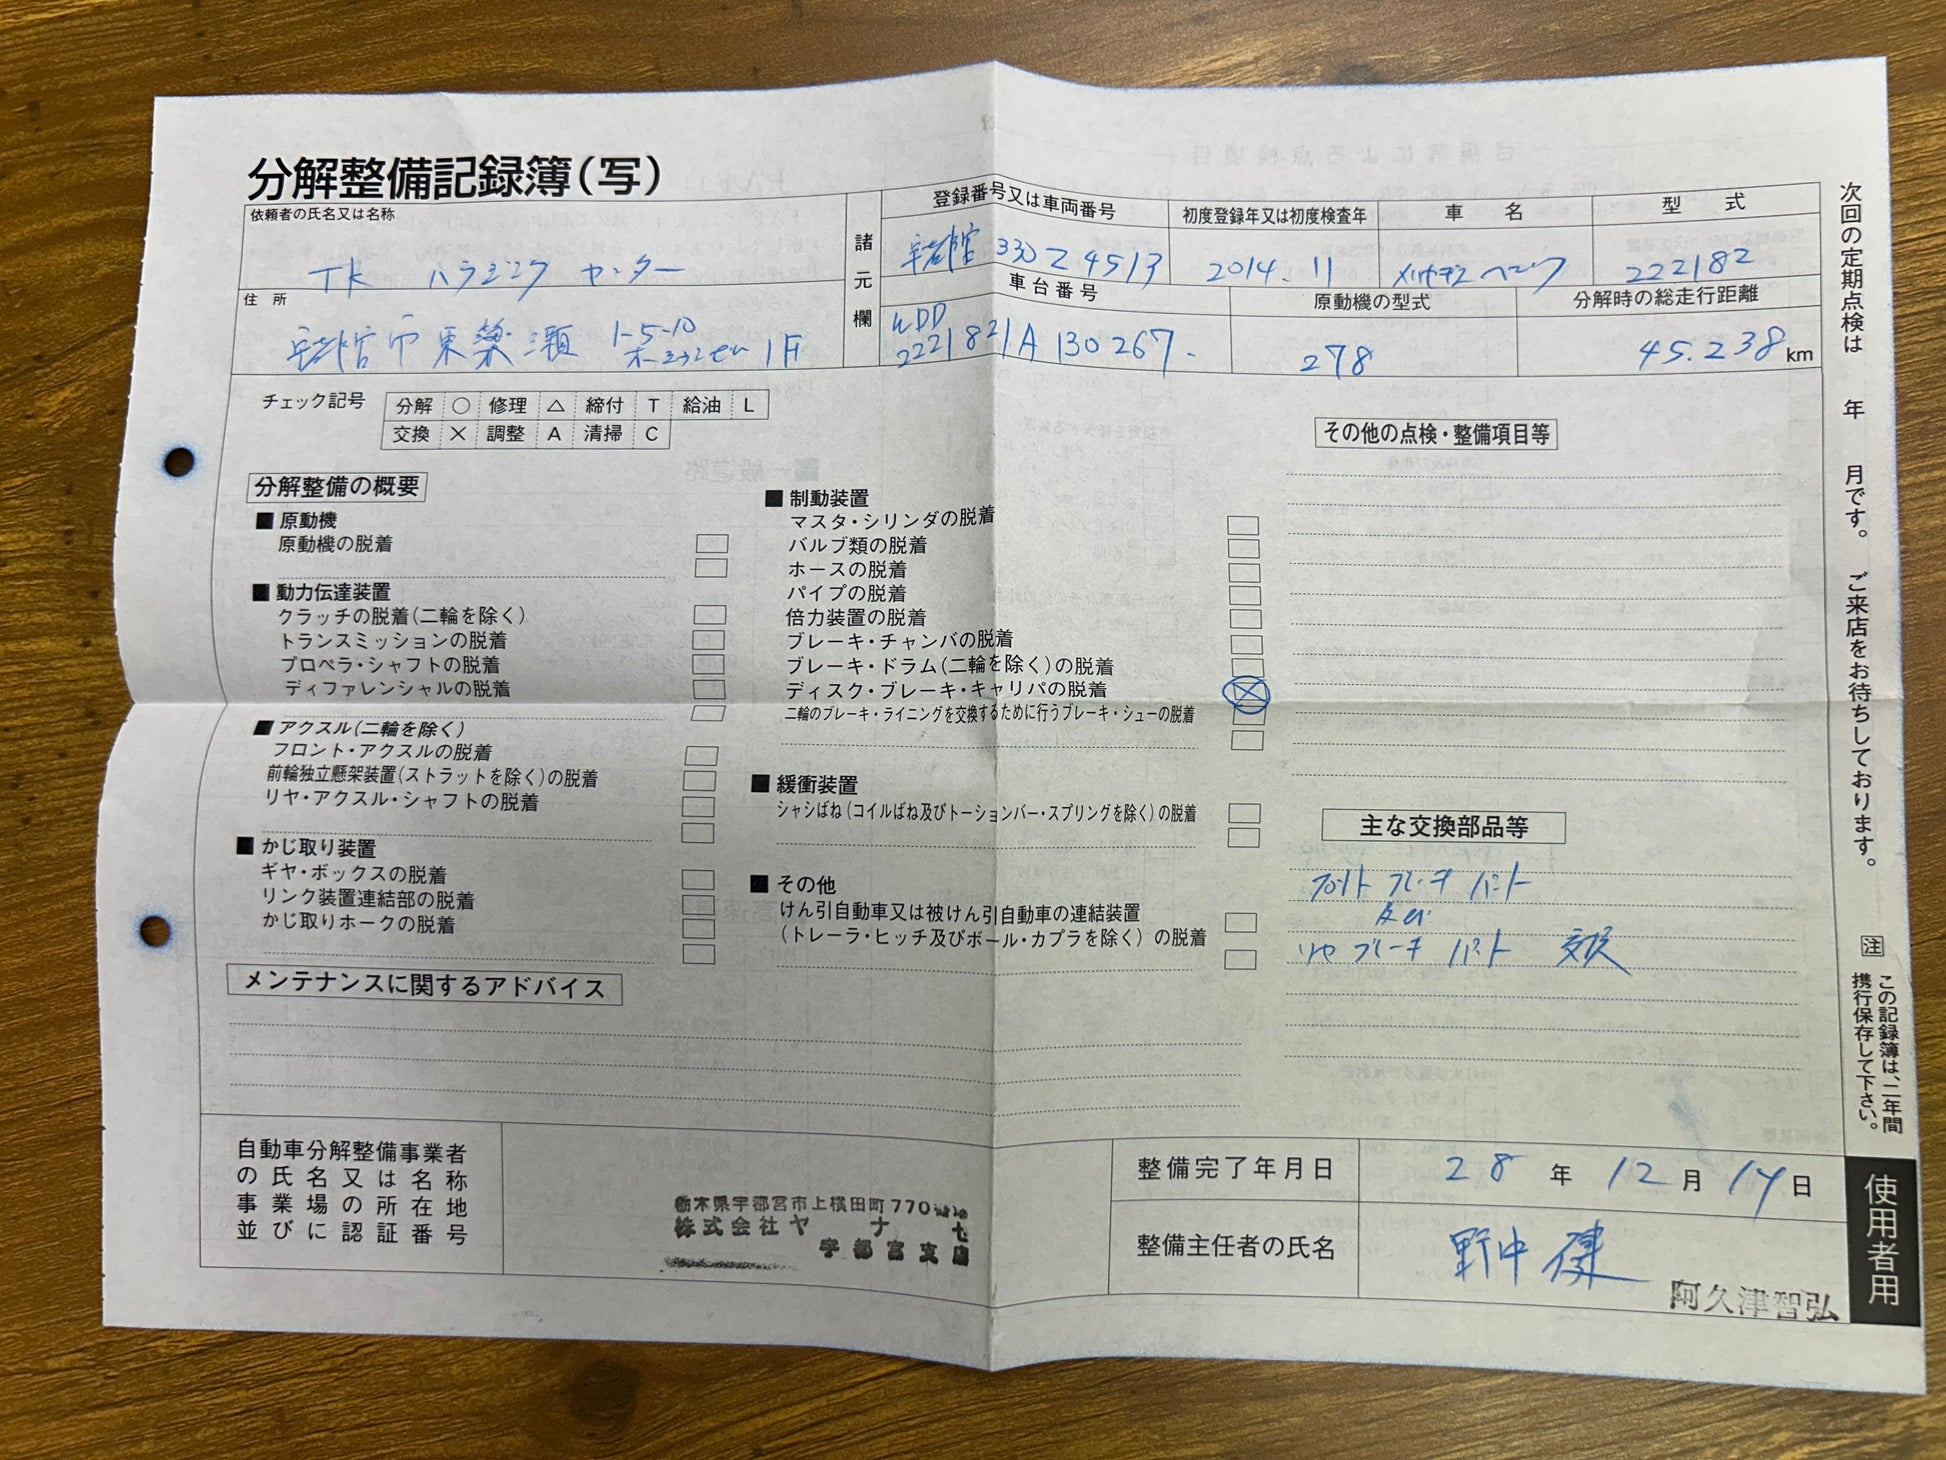 分解整備記録簿(写)
依頼者の氏名又は名称
TK ハラジュク センター
住所
宇都宮市東簗瀬 1-5-10
1F
諸元欄
登録番号又は車両番号
宇都宮 330 Z 4513
初度登録年又は初度検査年
2014. 11
車名
メルセデス ベンツ
型式
222182
車台番号
WDD
2221821A130267.
原動機の型式
278
分解時の総走行距離
45.238 km
チェック記号
分解 ○ 修理 △ 締付 T 給油 L
交換 × 調整 A 清掃 C
分解整備の概要
■ 原動機
原動機の脱着
■ 動力伝達装置
クラッチの脱着(二輪を除く)
トランスミッションの脱着
プロペラ・シャフトの脱着
ディファレンシャルの脱着
■ アクスル(二輪を除く)
フロント・アクスルの脱着
前輪独立懸架装置(ストラットを除く)の脱着
リヤ・アクスル・シャフトの脱着
■ かじ取り装置
ギヤ・ボックスの脱着
リンク装置連結部の脱着
かじ取りホークの脱着
■ 制動装置
マスタ・シリンダの脱着
バルブ類の脱着
ホースの脱着
パイプの脱着
倍力装置の脱着
ブレーキ・チャンバの脱着
ブレーキ・ドラム(二輪を除く)の脱着
ディスク・ブレーキ・キャリパの脱着
二輪のブレーキ・ライニングを交換するために行うブレーキ・シューの脱着
■ 緩衝装置
シャシばね(コイルばね及びトーションバー・スプリングを除く)の脱着
■ その他
けん引自動車又は被けん引自動車の連結装置
(トレーラ・ヒッチ及びボール・カプラを除く)の脱着
その他の点検・整備項目等
主な交換部品等
フロント ブレーキ パット
及び
リヤ ブレーキ パット 交換
メンテナンスに関するアドバイス
自動車分解整備事業者
の氏名又は名称
事業場の所在地
並びに認証番号
栃木県宇都宮市上横田町770
株式会社ヤナセ
宇都宮支店
整備完了年月日
28 年 12 月 14 日
整備主任者の氏名
野中 健
阿久津智弘
次回の定期点検は 年 月です。 ご来店をお待ちしております。
注 この記録簿は、二年間
携行保存して下さい。
使用者用